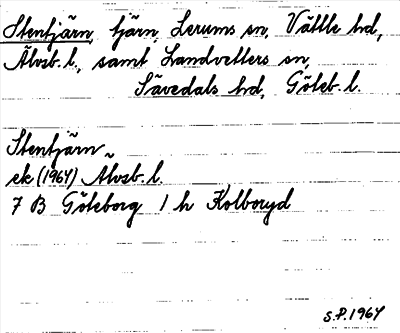 Stentjärn, tjärn, Lerums sn, Vättle hd,
Älvsb. l., samt Landvetters sn,
Sävedals hd, Göteb. l.
Stentjärn
ek (1964) Älvsb. l.
7 B Göteborg 1 h Kolboryd
S.P. 1964